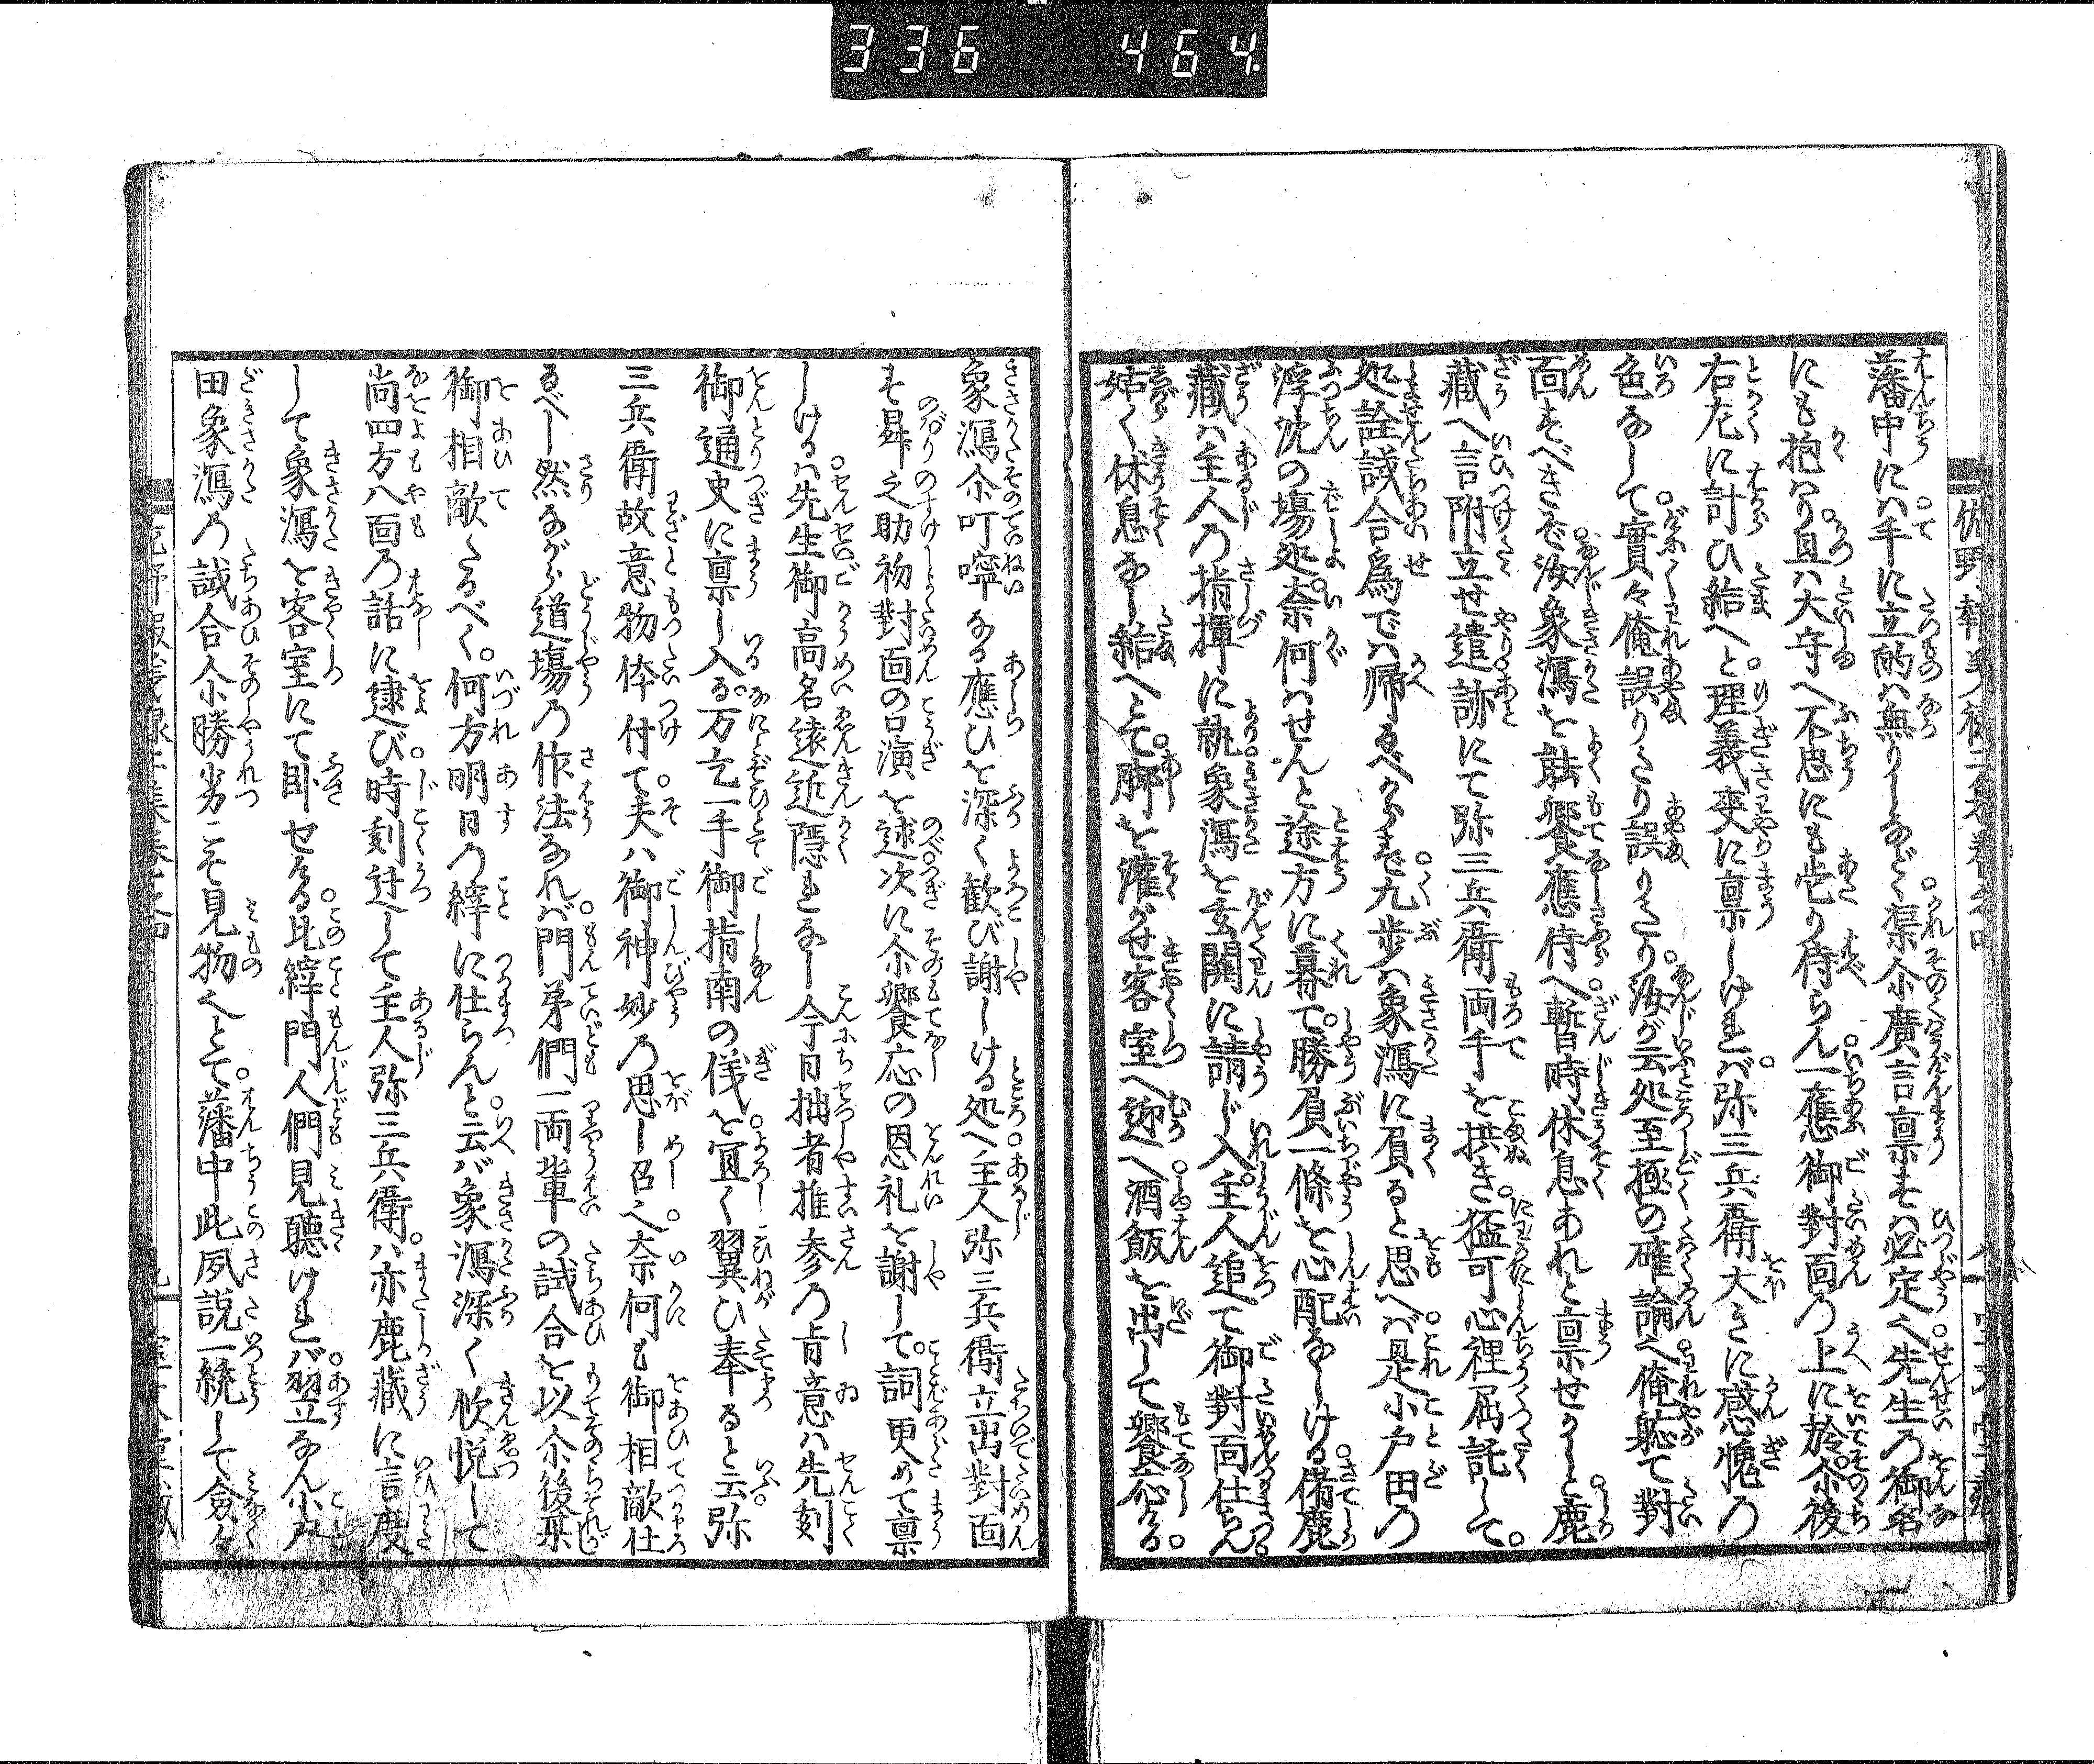 336 464.
藩中にハ手に立的ハ無りしなど渠尒廣言禀さバ必定之先生の御名
にも抱ハり且ハ大守へ不忠にも當り侍らん一應御對面の上に於尒後
右左に計ひ給へと理義爽に禀しけれバ弥三兵衛大きに感愧の
色なして實々俺誤りたり誤りたり汝が云処至極の確論へ俺恥て對
面すべきぞ汝象潟を能饗應侍へ暫時休息あれと禀せかしと鹿
藏へ言附立せ遣跡にて弥三兵衛両手を拱き猛可心裡屈託して
処詮試合為でハ帰るべからず九歩ハ象潟に負ると思へバ是小戸田の
浮沈の場処奈何ハせんと途方に暮て勝負一條を心配なしける偖鹿
藏ハ主人の指揮に執象潟を玄關に請じ入主人追て御對面仕らん
姑く休息なし給へとて脚を灌がせ客室へ迎へ酒飯を出して饗応ける
象潟尒叮嚀なる應ひを深く歓び謝しける処へ主人弥三兵衛立出對面
す舜之助初對面の口演を述次に尒饗応の恩礼を謝して詞更めて禀
しけるハ先生御高名遠近隠れなし今日拙者推参の旨意ハ先刻
御通史に禀し入る万乞一手御指南の儀を宜く翼ひ奉ると云弥
三兵衛故意物体付て夫ハ御神妙の思し召之奈何も御相敵仕
るべし然ながら道場の作法なれバ門弟們一両輩の試合を以尒後某
御相敵たるべく何方明日の縡に仕らんと云バ象潟深く欣悦して
尚四方八面の話に逮び時刻迁して主人弥三兵衛ハ亦鹿藏に言度
して象潟を客室にて臥せける此縡門人們見聽けれバ翌なん小戸
田象潟の試合尒勝劣こそ見物之とて藩中此夙説一統して僉々